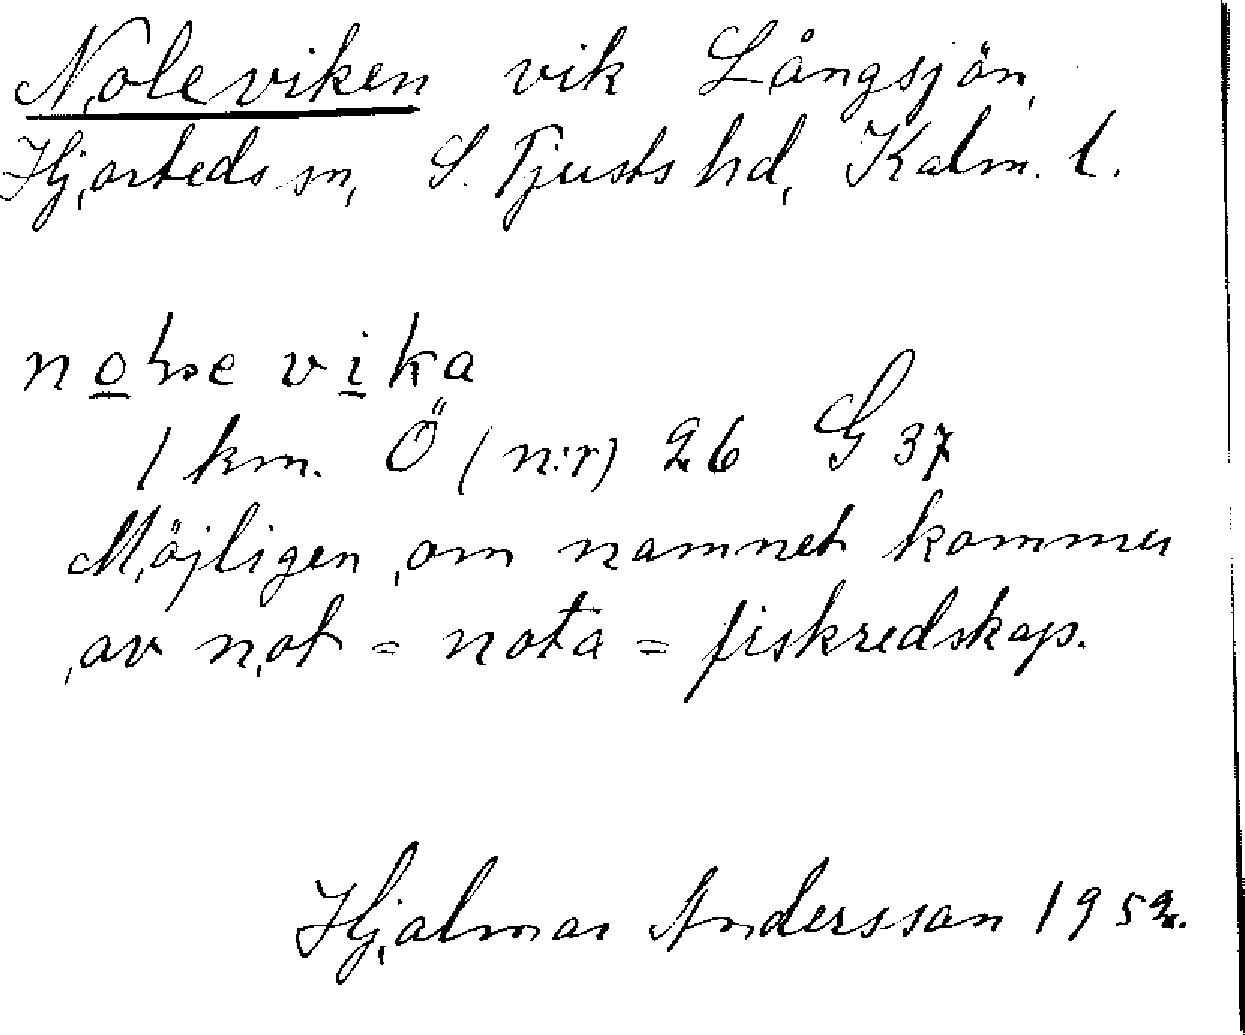 Noleviken vik Långsjön,
Hjorteds sn, S. Tjusts hd, Kalm. l.
vika
1 km. Ö (n:r) 26 G 37
Möjligen om namnet kommer
av not = nota = fiskredskap.
Hjalmar Andersson 1952.